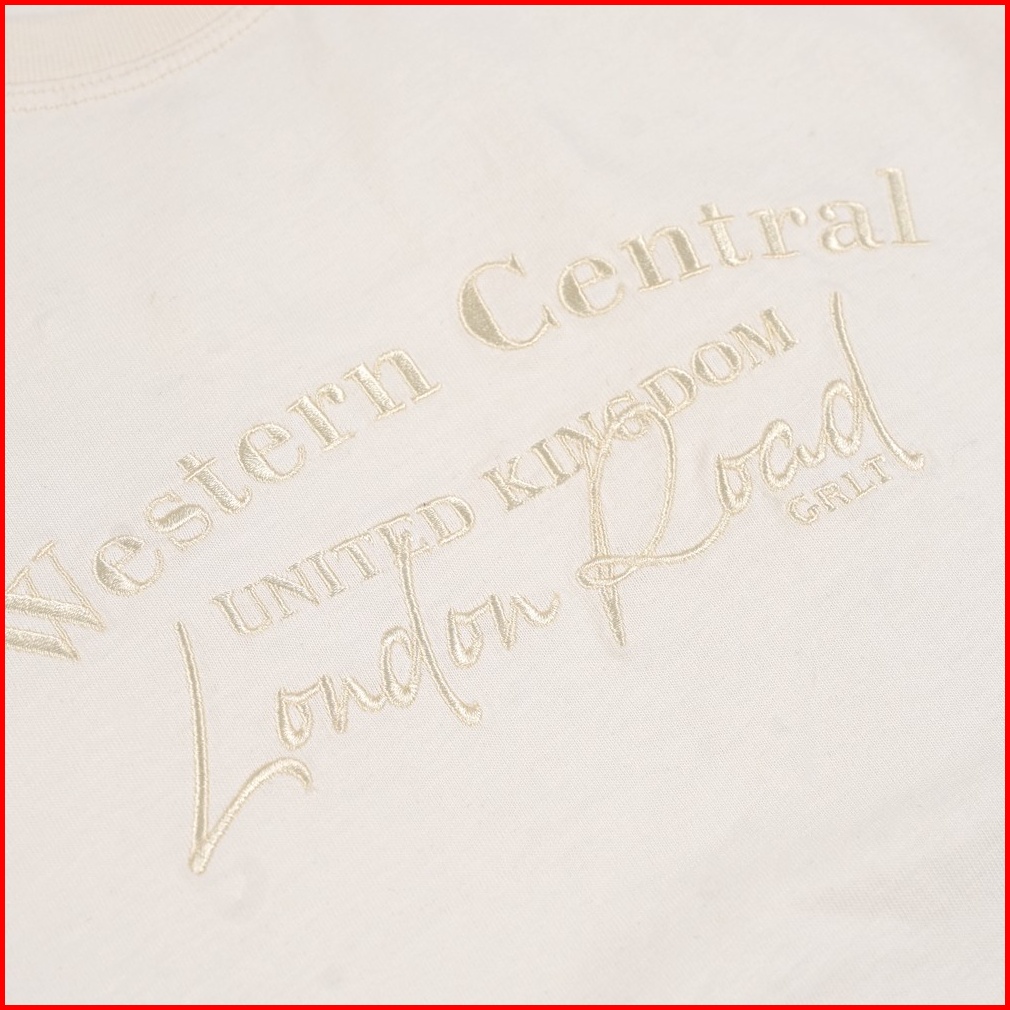 Western Central
UNITED KINGDOM
London Road
GRLT